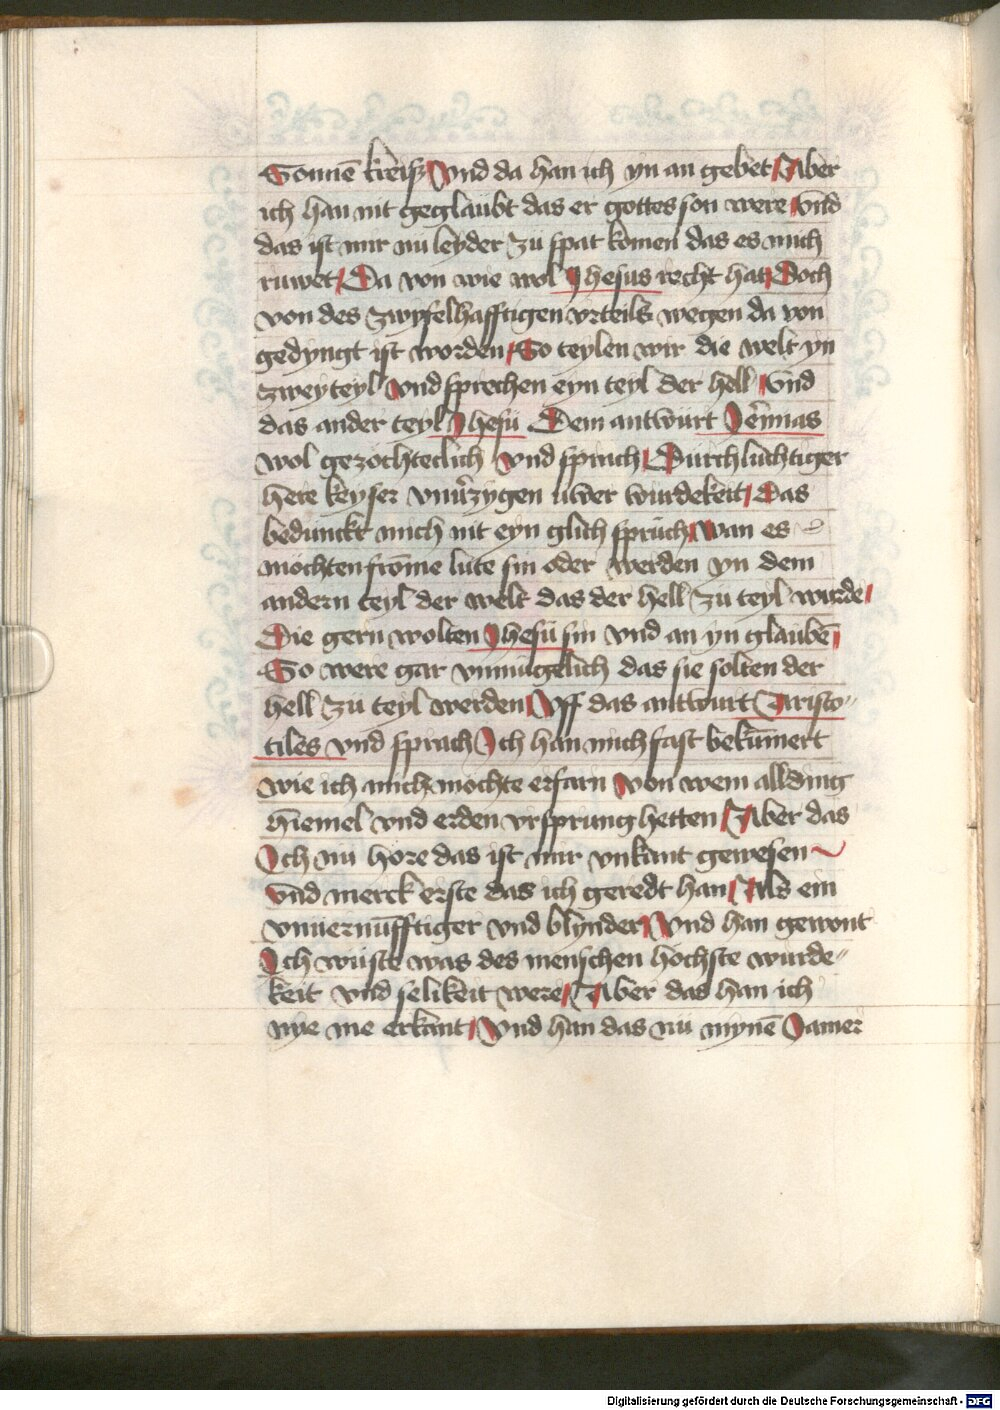 Sonnē kreiß / Vnd da han ich yn an gebet / Aber
ich han nit geglaubt das er gottes son were / vnd
das ist mir nu leyder zü spat komen das es mich
ruwet / Da von wie wol Jhesus recht hat / Doch
von des zwyfelhafftigen vrteils wegen da von
gedyngt ist worden / So teylen wir die welt yn
zwey teyl / Vnd sprechen eyn teyl der hell / vnd
das ander teyl Jhesü Dem antwürt
wol gezochteclich vnd sprach / Durchluchtiger
here keyser uwer wurdekeit / Das
bedunckt mich nit eyn glich sprüch / Wan es
mochten frōme lute sin oder werden yn dem
andern teyl der welt das der hell zü teyl wurde /
Die gern wolten Jhesü sin vnd an yn glaubē /
So were gar vnmügelich das sie solten der
hell zü teyl werden / Vff das antwurt Aristo-
tiles vnd sprach Ich han mich fast bekūmert
wie ich mich mochte erfarn von wem all ding
hiemel vnd erden vrsprung hetten / Aber das
Ich nu hore das ist mir vnkant gewesen
vnd merck erste das ich geredt han / Als ein
vnuernūfftiger vnd blynder / Vnd han gewont
Ich wüste was des menschen hochste wurde-
keit vnd selikeit were / Aber das han ich
nye me erkant / Vnd han das nü mynē Jamer
Digitalisierung gefördert durch die Deutsche Forschungsgemeinschaft - DFG